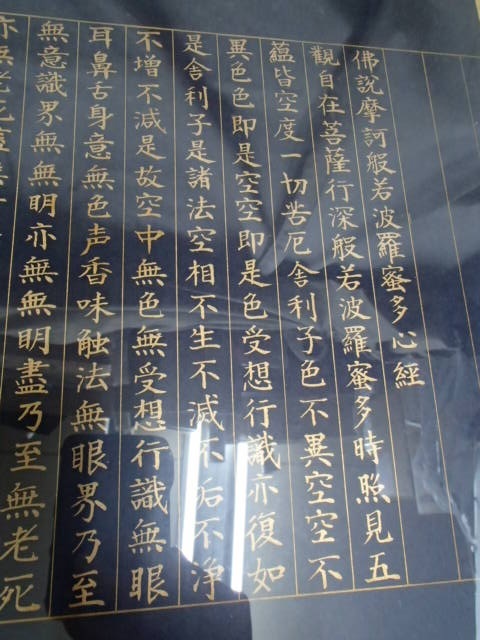 佛説摩訶般若波羅蜜多心經
觀自在菩薩行深般若波羅蜜多時照見五
蘊皆空度一切苦厄舎利子色不異空空不
異色色即是空空即是色受想行識亦復如
是舎利子是諸法空相不生不滅不垢不浄
不増不減是故空中無色無受想行識無眼
耳鼻舌身意無色声香味触法無眼界乃至
無意識界無無明亦無無明盡乃至無老死
亦無老死盡